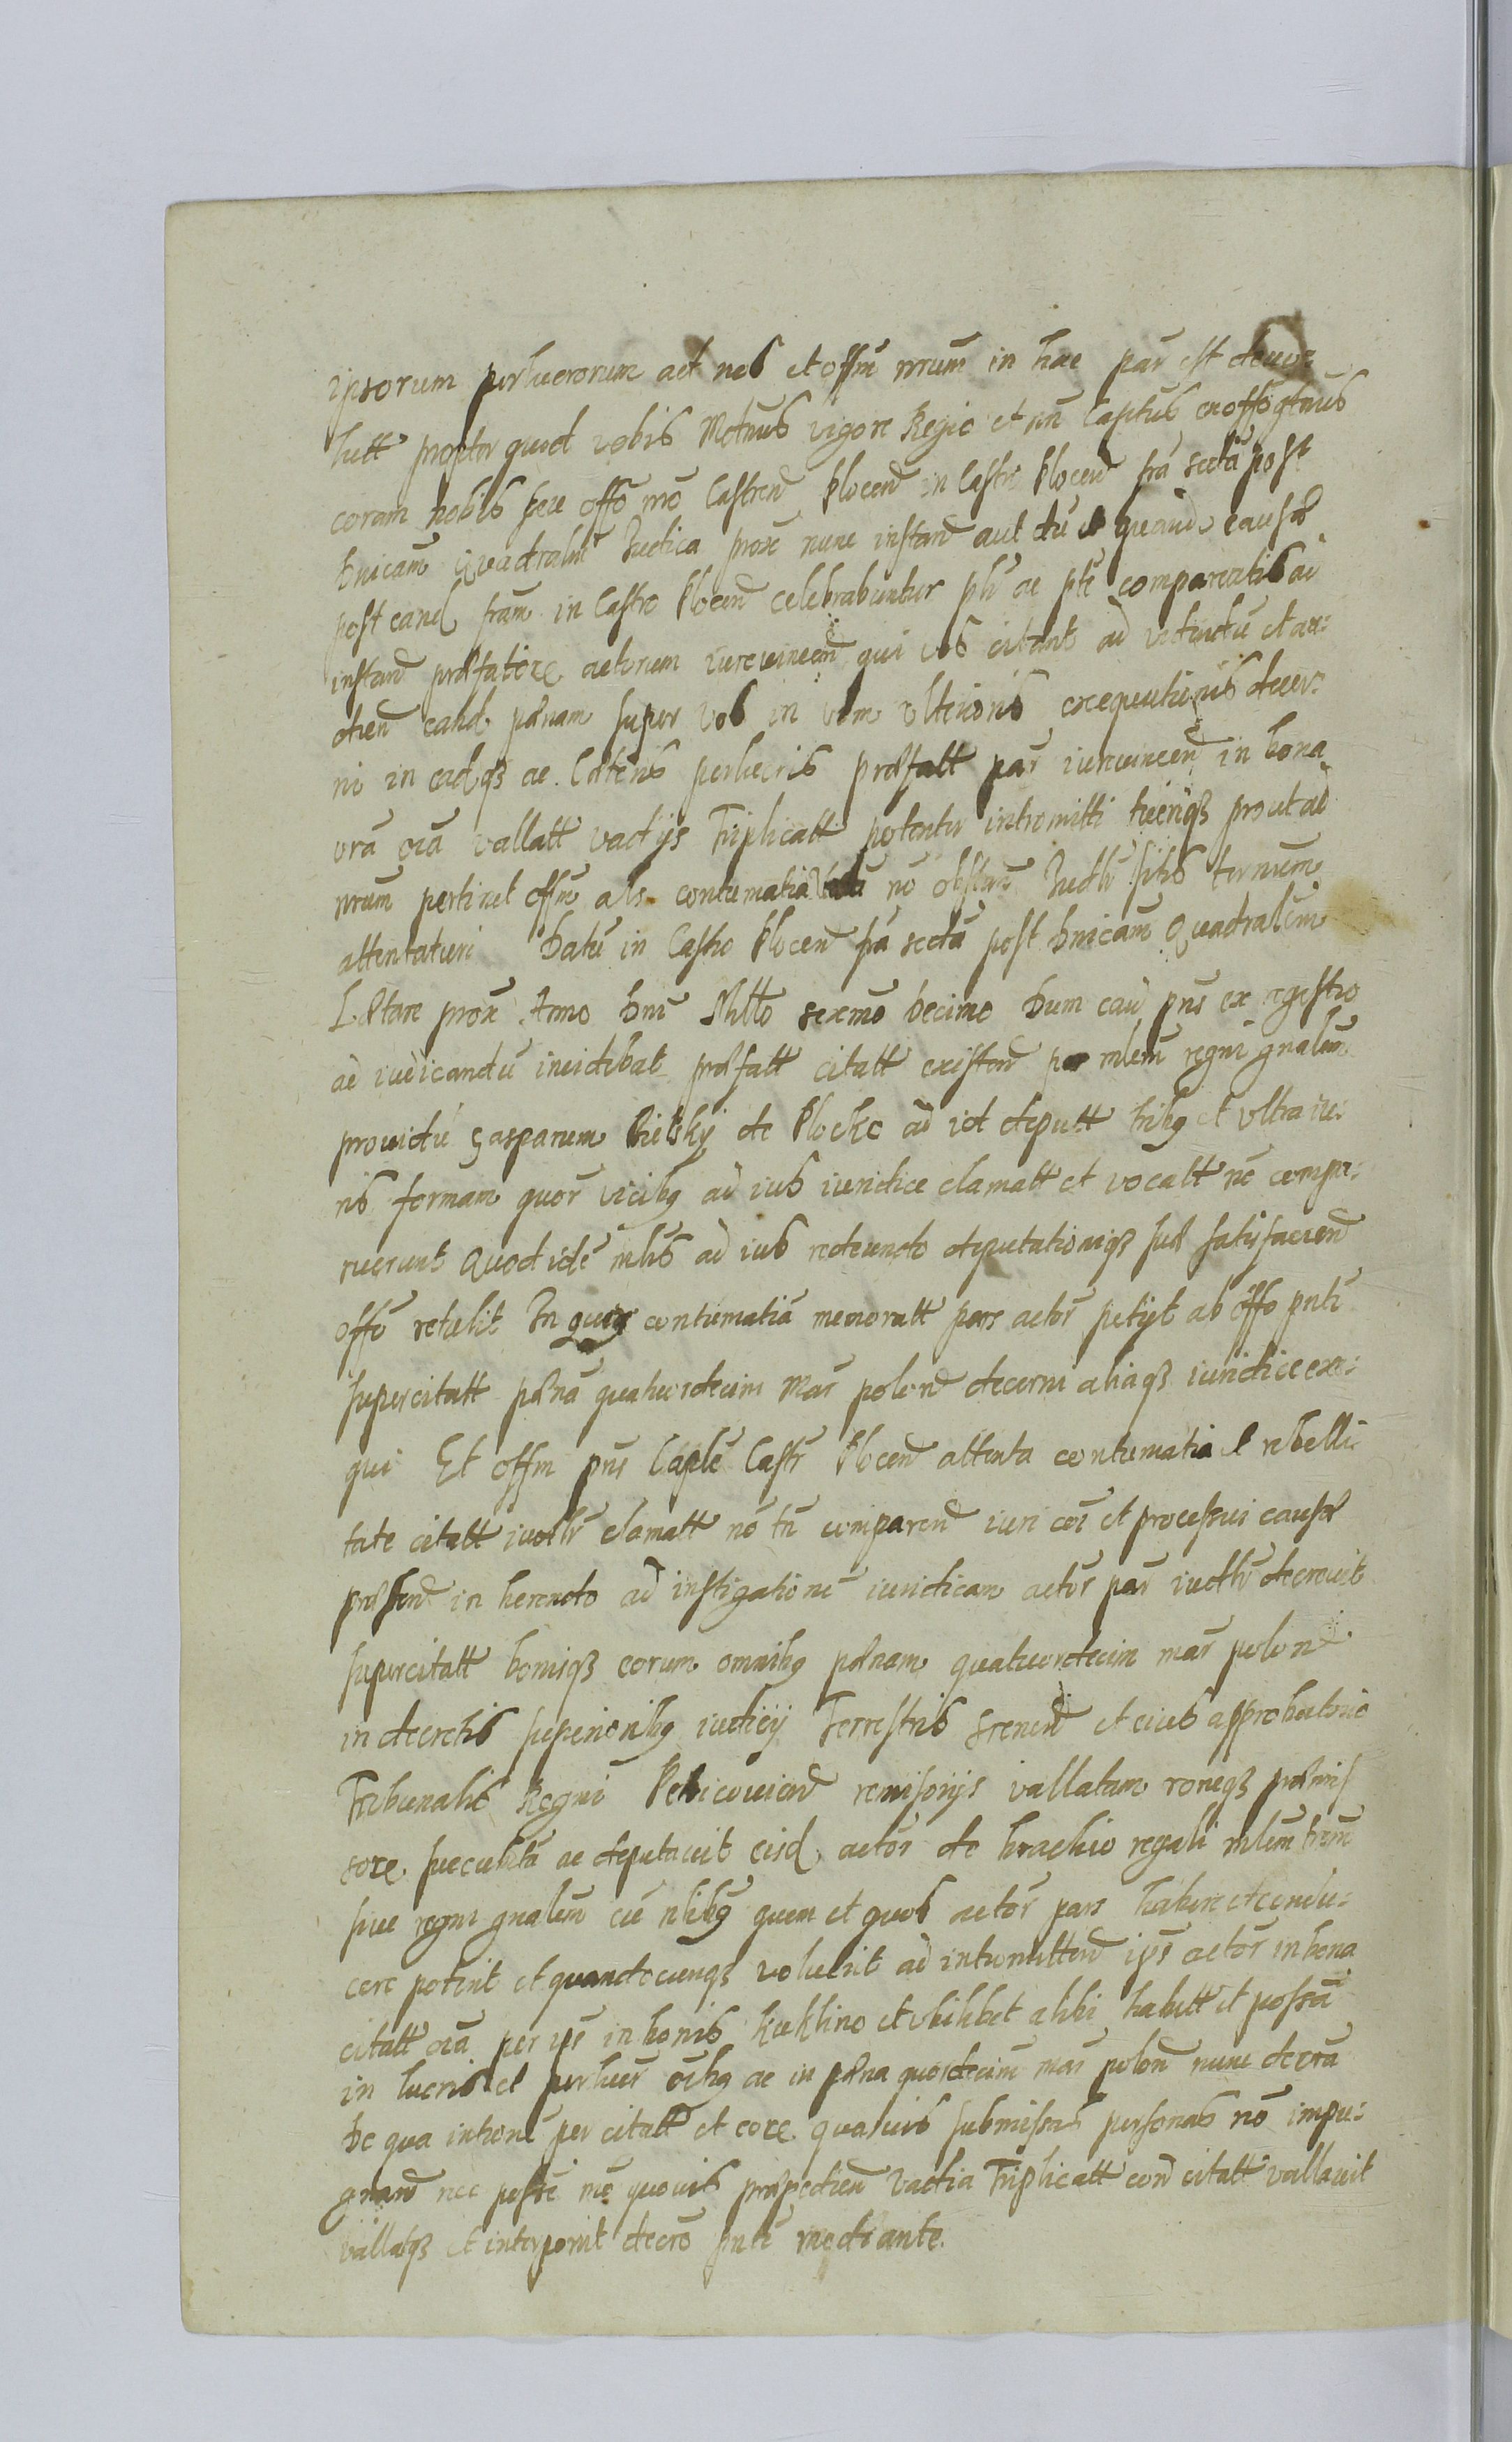 ipsorum perlucrorum ad nos et offm nrum in hac par est devo=
lutt propter quod vobis Mdmus vigore Regio et nri Captus ex offo gtmus
coram nobis seu offo nro Castren Plocen in Castro Plocen fra secda post
Dnicam Quadralem Judica prox nunc instan aut dum et quando causæ
post eand fram in Castro Plocen celebrabuntur plr ac pte compareatis ad
instan præfatore actorum iurevincen qui vos citant ad videndu et au=
dien eand pœnam super vos in vim ulterioris exequutionis decer=
ni in eadqз ac cæteris perlucris præfatt par iurevincen in bona
vra oia vallatt vadijs Triplicatt potenter intromitti tuenqз prout ad
nrum pertinet offm als contumatia no obstan Judlr sitis ternum
attentaturi Datu in Castro Plocen fra secda post Dnicam Quadralem
Lætare prox Anno Dni Millo sexmo decimo Dum cau pns ex regestro
ad iudicandu incidebat præfatt citatt existen per mlem regni gnalem
providu Gasparum Bielsky de Plocko ad id deputt tribq et ultra iu=
ris formam quor vicibq ad ius iuridice clamatt et vocatt no compa=
ruerunt Quod ide mlis ad ius redeundo deputationiqз suæ satisfacien
offo retulit In quor contumatia memoratt pars actor petijt ab offo pnti
supercitatt pœna quatuordecim Mar polon decerni aliaqз iuridice exe=
qui Et offm pns Caple Castr Plocen attenta contumatia et rebelli
tate citatt iudlr clamatt no tn comparen iuri coi et processui causæ
præsen in herendo ad instigatione iuridicam actor par iudlr decrevit
supercitatt bonisqз eorum omnibq pœnam quatuordecim mar polon
in decretis superioribq iudicij Terrestris Srenen et eius approbatorio
Tribunalis Regni Petricovien remissorijs vallatam roneqз præmis
sore succubita ac deputavit eisd actor de brachio regali mlem trem
sive regni gnalem cu nlibq quem et quos actor pars habere et condu=
cere poterit et quandocunqз voluerit ad intromitten ips actor in bona
citatt oia per ips in bonis Kuklino et ubilibet alibi habitt et possa
in lucris et perlucr oibq ac in pœna quordecim mar polon nunc decra
De qua introne per citatt et eore quasvis submissas personas no impu=
gnan nec posse mo quovis præpedien Vadia Triplicatt con citatt vallavit
vallatqз et interponit decro pnti mediante.